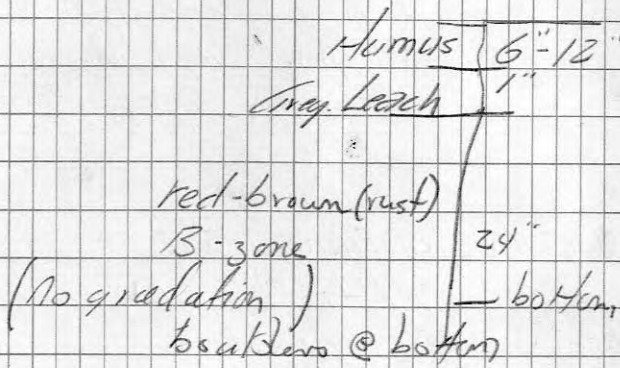 Humus 6"-12"
Gray. Leach 1"
red-brown (rust)
B-zone 24"
(no gradation) bottom
boulders @ bottom